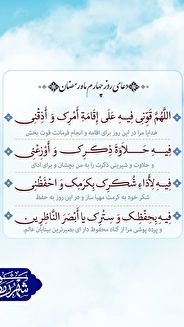 دعای روز چهارم ماه رمضان
اللَّهُمَّ قَوِّنِي فِيهِ عَلَى إِقَامَةِ أَمْرِكَ وَ أَذِقْنِي
خدایا مرا در این روز برای اقامه و انجام فرمانت قوت بخش
فِيهِ حَلاَوَةَ ذِكْرِكَ وَ أَوْزِعْنِي
و حلاوت و شیرینی ذکرت را به من بچشان و برای ادای
فِيهِ لِأَدَاءِ شُكْرِكَ بِكَرَمِكَ وَ احْفَظْنِي
شکر خود به کرمت مهیا ساز و در این روز به حفظ
فِيهِ بِحِفْظِكَ وَ سِتْرِكَ يَا أَبْصَرَ النَّاظِرِينَ
و پرده پوشی مرا از گناه محفوظ دار ای بصیرترین بینایان عالم.